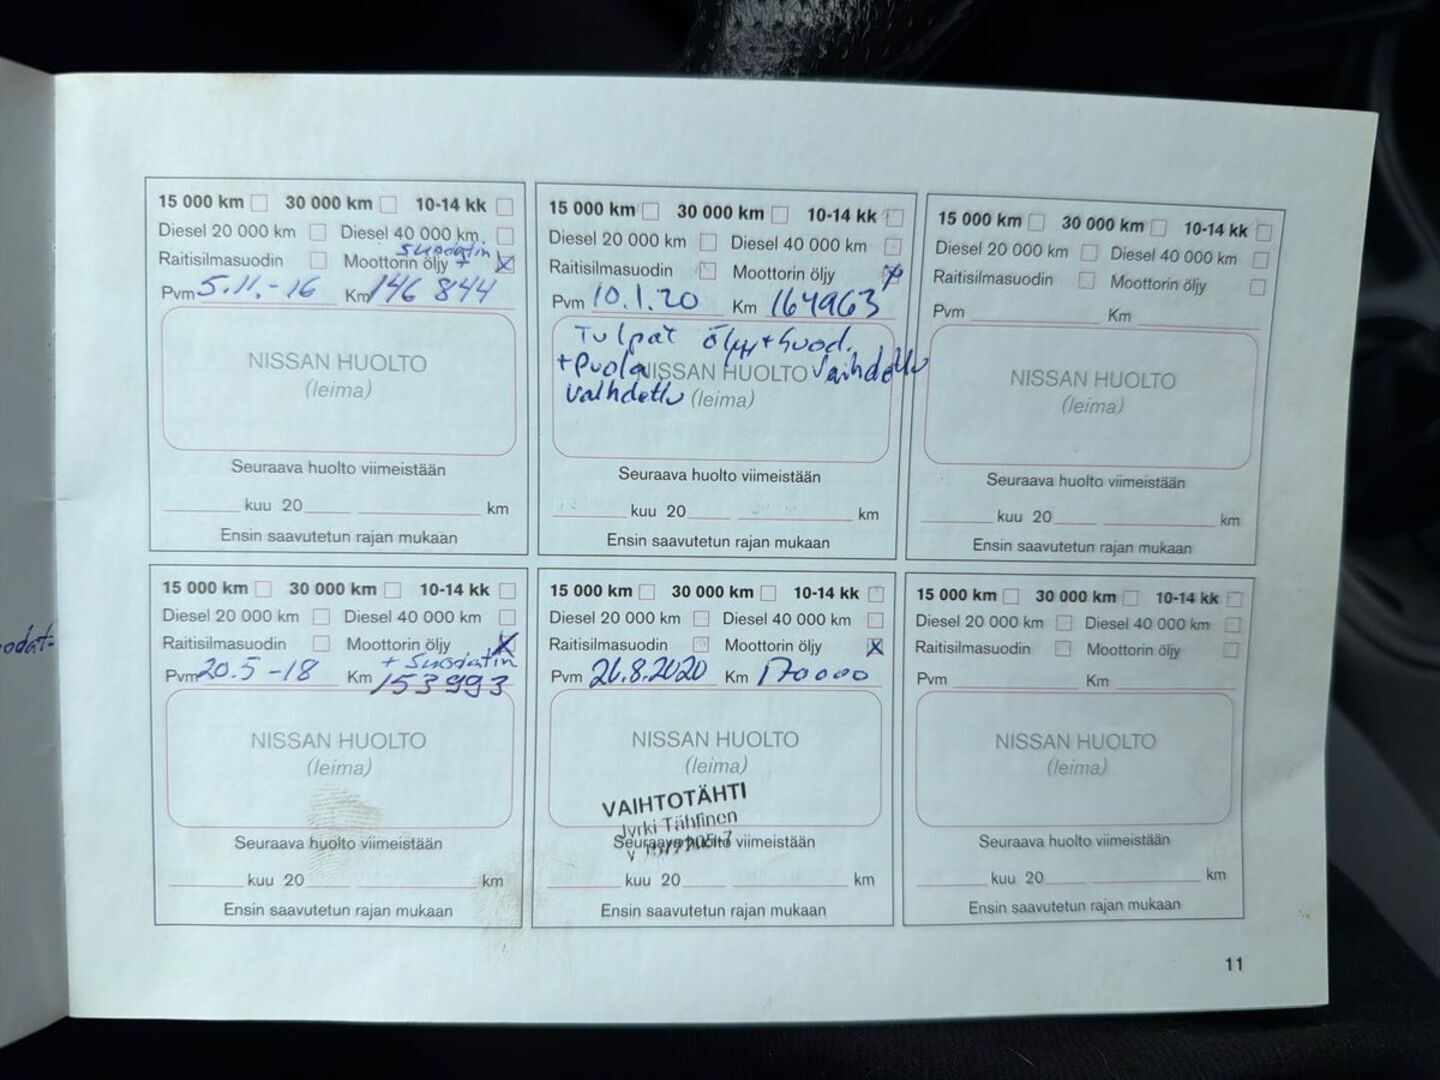 15 000 km 30 000 km 10-14 kk
Diesel 20 000 km Diesel 40 000 km
suodatin
Raitisilmasuodin Moottorin öljy +
Pvm 5.11.-16 Km 146 844
NISSAN HUOLTO
(leima)
Seuraava huolto viimeistään
kuu 20 km
Ensin saavutetun rajan mukaan
15 000 km 30 000 km 10-14 kk
Diesel 20 000 km Diesel 40 000 km
Raitisilmasuodin Moottorin öljy
Pvm 10.1.20 Km 164963
Tulpat öljy+suod.
+Puola NISSAN HUOLTO vaihdettu
vaihdettu (leima)
Seuraava huolto viimeistään
kuu 20 km
Ensin saavutetun rajan mukaan
15 000 km 30 000 km 10-14 kk
Diesel 20 000 km Diesel 40 000 km
Raitisilmasuodin Moottorin öljy
Pvm Km
NISSAN HUOLTO
(leima)
Seuraava huolto viimeistään
kuu 20 km
Ensin saavutetun rajan mukaan
15 000 km 30 000 km 10-14 kk
Diesel 20 000 km Diesel 40 000 km
Raitisilmasuodin Moottorin öljy
+ suodatin
Pvm 20.5-18 Km 153993
NISSAN HUOLTO
(leima)
Seuraava huolto viimeistään
kuu 20 km
Ensin saavutetun rajan mukaan
15 000 km 30 000 km 10-14 kk
Diesel 20 000 km Diesel 40 000 km
Raitisilmasuodin Moottorin öljy
Pvm 26.8.2020 Km 170000
NISSAN HUOLTO
(leima)
VAIHTOTÄHTI
Jyrki Tähtinen
Seuraava huolto viimeistään
kuu 20 km
Ensin saavutetun rajan mukaan
15 000 km 30 000 km 10-14 kk
Diesel 20 000 km Diesel 40 000 km
Raitisilmasuodin Moottorin öljy
Pvm Km
NISSAN HUOLTO
(leima)
Seuraava huolto viimeistään
kuu 20 km
Ensin saavutetun rajan mukaan
11